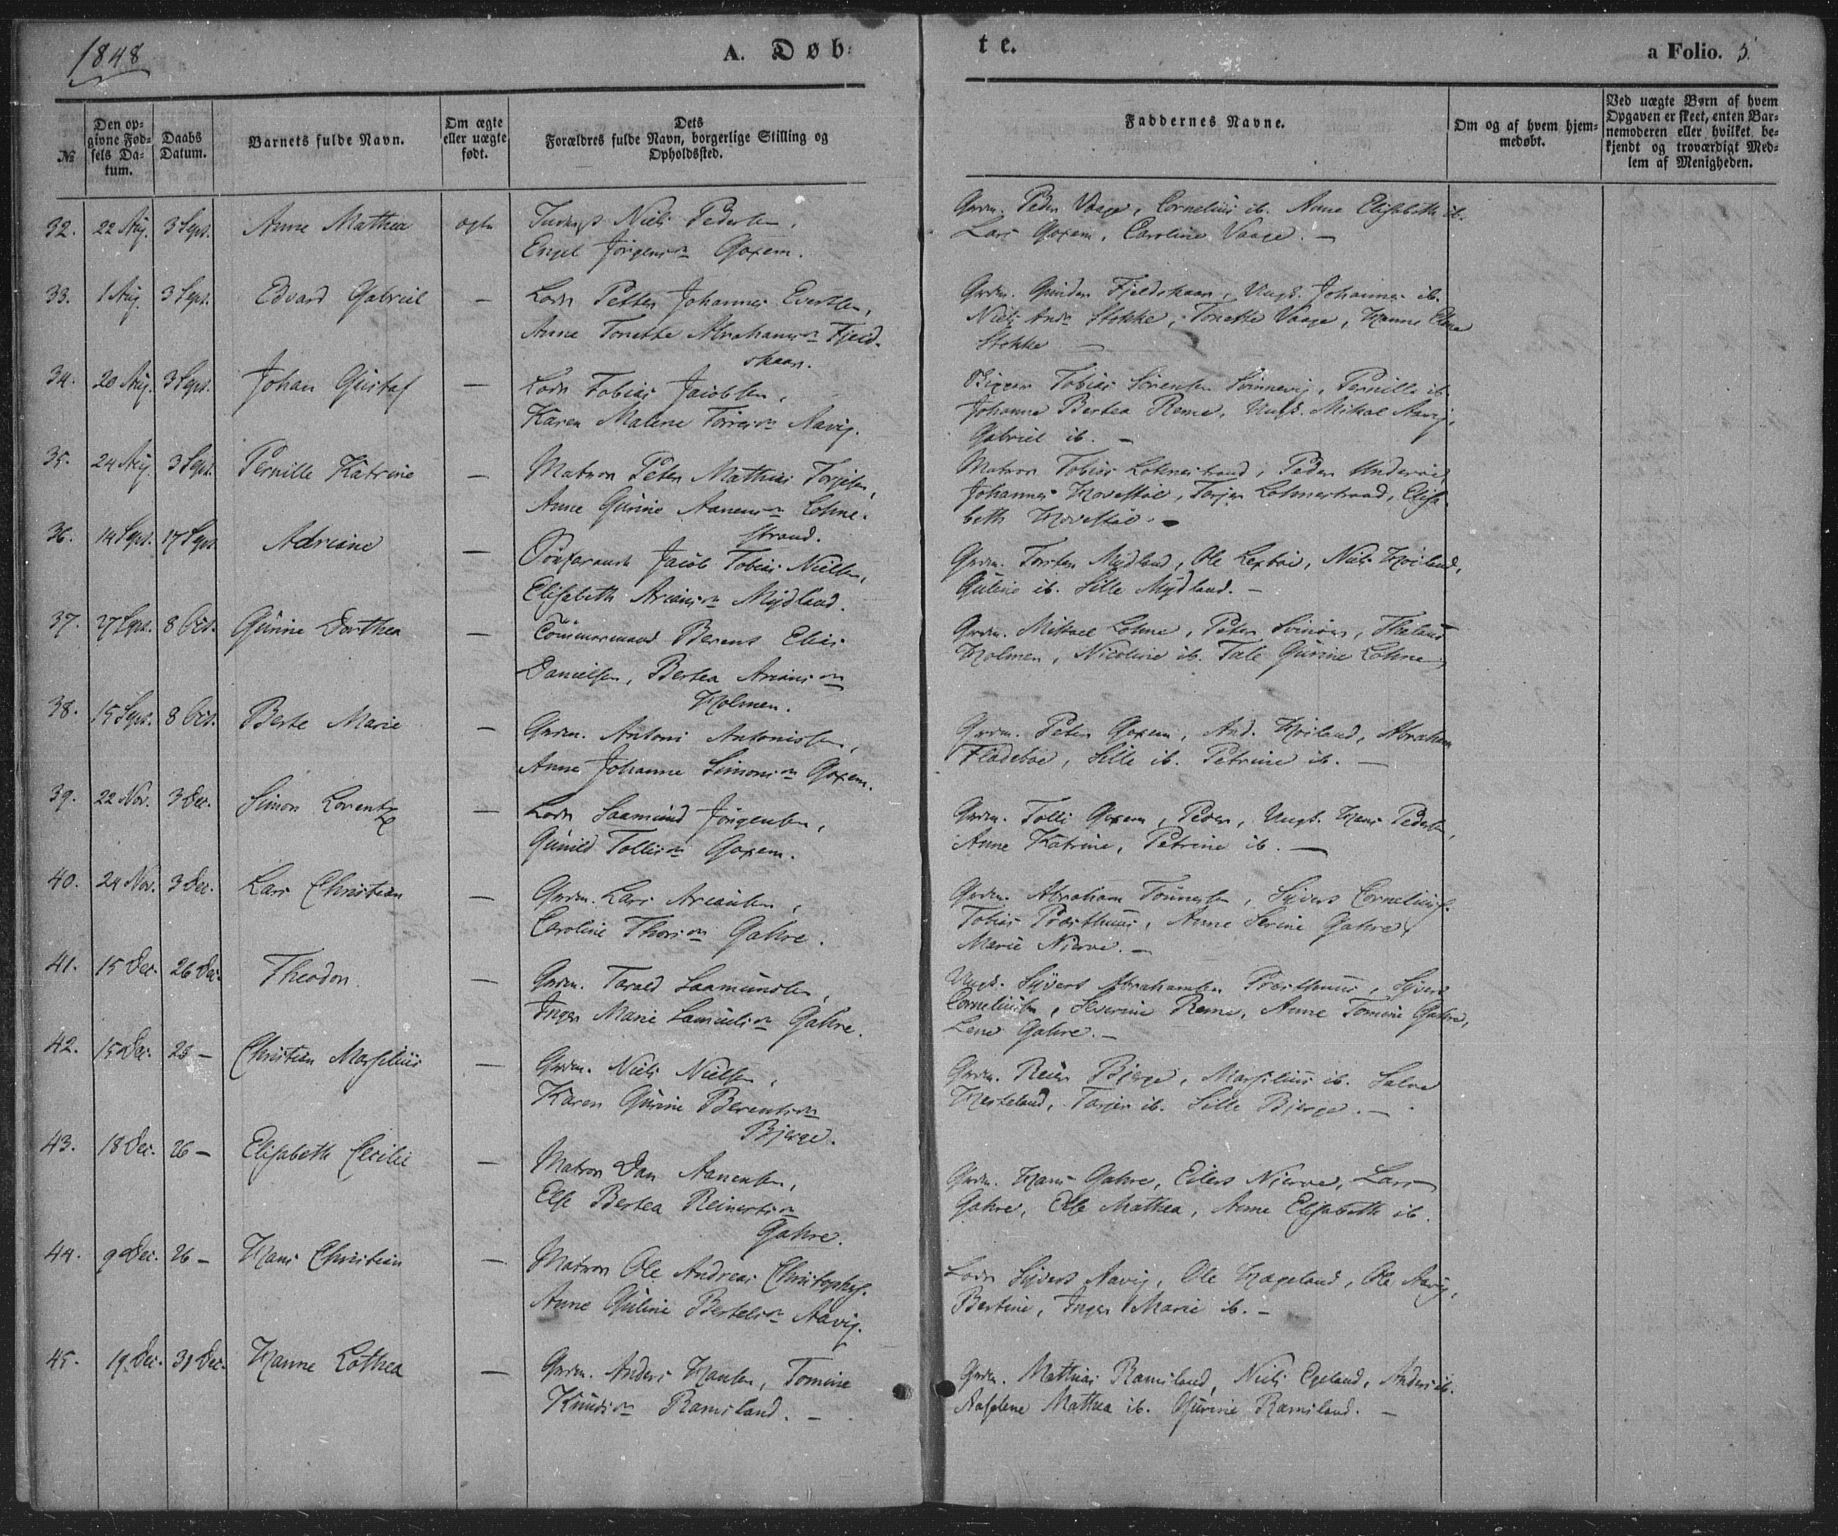 1848
A. Døb-
te.
a Folio. 5.
№
Den op-
givne Fød-
sels Da-
tum.
Daabs
Datum.
Barnets fulde Navn.
Om ægte
eller uægte
født.
Dets
Forældres fulde Navn, borgerlige Stilling og
Opholdssted.
Faddernes Navne.
Om og af hvem hjem-
medøbt.
Ved uægte Børn af hvem
Opgaven er skeet, enten Bar-
nemoderen eller hvilket be-
kjendt og troværdigt Med-
lem af Menigheden.
32. 22 Aug. 3 Sept. Anne Mathea ægte Niels Pedersen,
Engel Jörgensn Goxem.
Grdm. Peder Vaage, Cornelius ib. Anne Elisabeth ib.
Lars Goxem, Caroline Vaage. —
33. 1 Aug. 3 Sept. Edvard Gabriel — Lods Petter Johannes Evertsen,
Anne Tonette Abrahamsn Fjeld-
skaar.
Grdm. Gunder Fjeldskaar, Ungk. Johannes ib.
Niels Andr. Stokke, Tonette Vaage, Hanne Elene
Stokke —
34. 20 Aug. 3 Sept. Johan Gustaf — Lods Tobias Jacobsen,
Karen Malene Torresn Aavig.
Tobias Sörensen Svinnevig, Pernille ib.
Johanne Bertea Reme, Ungk. Mikal Aavig,
Gabriel ib. —
35. 24 Aug. 3 Sept. Pernille Katrine — Matros Peter Mathias Torjesen,
Anne Gurine Aanensn Lohne-
strand.
Matros Tobias Lohnestrand, Peder Underöe,
Johannes Hovestöe, Torjer Lohnestrand, Elisa-
beth Hovestöe. —
36. 14 Sept. 17 Sept. Adriane — Jacob Tobias Nielsen,
Elisabeth Ariansn Mydland.
Grdm. Torsten Mydland, Ole Niels Höiland,
Guline ib. Sille Mydland. —
37. 27 Sept. 8 Oct. Gurine Dorthea — Tömmermand Berent Elias
Danielsen, Bertea Ariansn
Holmen.
Grdm. Mikael Lohne, Peter Svinör,
Holmen, Nicoline ib. Tale Gurine Lohne.
38. 15 Sept. 8 Oct. Berte Marie — Grdm. Antoni Antonissen,
Anne Johanne Simonsn Goxem.
Grdm. Peter Goxem, And. Höiland, Abraham
Fladeböe, Sille ib. Petrine ib. —
39. 22 Nov. 3 Dec. Simon Lorentz — Lods Saamund Jörgensen,
Gunild Tollisn Goxem.
Grdm. Tolli Goxem, Peder, Ungk. Hans Pedersen,
Anne Katrine, Petrine ib. —
40. 24 Nov. 3 Dec. Lars Christian — Grdm. Lars Ariansen,
Caroline Thorsn Gahre.
Grdm. Abraham Tönnesen, Syvert Corneliuss.
Tobias Præsthuus, Anne Serine Gahre,
Marie Nierve. —
41. 15 Dec. 26 Dec. Theodor. — Grdm. Tarald Saamundsen,
Inger Marie Samuelsn Gahre.
Ungk. Syvert Abrahamsen Præsthuus, Syvert
Corneliussen, Severine Reme, Anne Tomine Gahre,
Lene Gahre. —
42. 15 Dec. 26 — Christian Marselius — Grdm. Niels Nielsen,
Karen Gurine Berentsn
Bjerge.
Grdm. Reier Bjerge, Marselius ib. Salve
Herteland, Torjer ib. Sille Bjerge. —
43. 18 Dec. 26 — Elisabeth Cecilie — Matros Dan Aanensen,
Else Bertea Reinertsn
Gahre.
Grdm. Hans Gahre, Eilert Nierve, Lars
Gahre, Else Mathea, Anne Elisabeth ib.
44. 9 Dec. 26 — Hans Christian — Matros Ole Andreas Christophers.
Anne Guline Bertelsn Aavig.
Lods Syvert Aavig, Ole Hageland, Ole Aavig,
Bertine, Inger Marie ib. —
45. 19 Dec. 31 Dec. Hanne Lothea — Grdm. Anders Hansen, Tomine
Knudsn Ramsland. —
Grdm. Mathias Ramsland, Niels Egeland, Anders ib.
Mathea ib. Gurine Ramsland. —